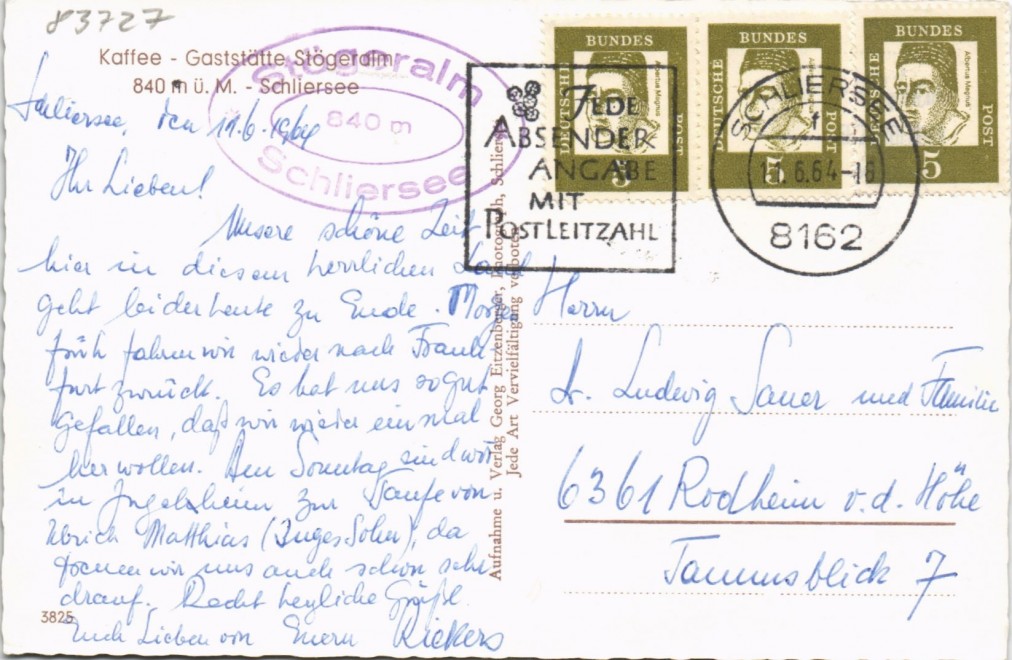 83727
Kaffee - Gaststätte Stögeralm
840 m ü. M. - Schliersee
Stögeralm
840 m
Schliersee
Schliersee, den 11.6.1964
Ihr Lieben!
Unsere schöne Zeit
hier in diesem herrlichen Land
geht leider heute zu Ende. Morgen
früh fahren wir wieder nach Frank-
furt zurück. Es hat uns so gut
gefallen, daß wir wieder einmal
her wollen. Am Sonntag sind wir
in Ingelheim zur Taufe von
Ulrich Matthias (Inges Sohn), da
freuen wir uns auch schon sehr
drauf. Recht herzliche Grüße
Euch Lieben von Euern Rickers
3825
Aufnahme u. Verlag Georg Eitzenberger, Photograph, Schliersee
Jede Art Vervielfältigung verboten
JEDE
ABSENDER
ANGABE
MIT
POSTLEITZAHL
BUNDES
DEUTSCHE
POST
Albertus Magnus
5
BUNDES
DEUTSCHE
POST
5
BUNDES
DEUTSCHE
POST
Albertus Magnus
5
SCHLIERSEE
f
11.6.64-16
8162
Herrn
Dr. Ludwig Sauer und Familie
6361 Rodheim v.d. Höhe
Taunusblick 7